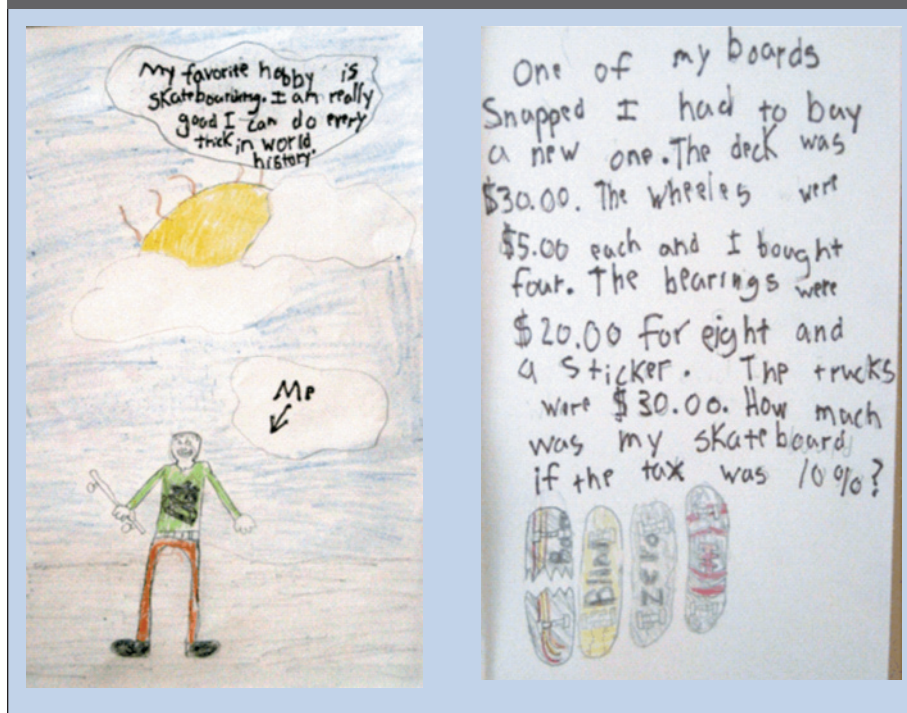 My favorite hobby is
skateboarding. I am really
good I can do every
trick in world
history.
Me
One of my boards
Snapped I had to bay
a new one. The deck was
$30.00. The wheeles were
$5.00 each and I bought
four. The bearings were
$20.00 for eight and
a sticker. The trucks
were $30.00. How much
was my skateboard
if the tax was 10%?
Blind
Zero